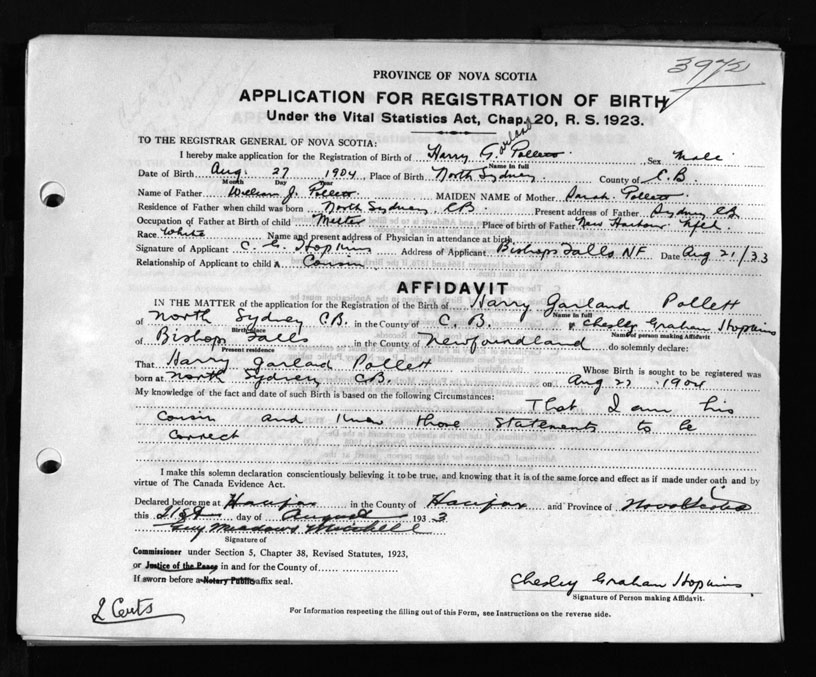 3972
PROVINCE OF NOVA SCOTIA
APPLICATION FOR REGISTRATION OF BIRTH
Under the Vital Statistics Act, Chap. 20, R. S. 1923.
TO THE REGISTRAR GENERAL OF NOVA SCOTIA:
I hereby make application for the Registration of Birth of Harry Garland Pollett Sex Male
Name in full
Date of Birth Aug. 27 1904, Place of Birth North Sydney County of C.B.
Month Day Year
Name of Father William J. Pollett MAIDEN NAME of Mother Sarah Pollett
Residence of Father when child was born North Sydney CB Present address of Father Sydney CB
Occupation of Father at Birth of child Place of birth of Father New Harbour Nfld.
Race White Name and present address of Physician in attendance at birth
Signature of Applicant C. G. Hopkins Address of Applicant Bishops Falls NF Date Aug 21/33
Relationship of Applicant to child A Cousin
AFFIDAVIT
IN THE MATTER of the application for the Registration of the Birth of Harry Garland Pollett
Name in full
of North Sydney C.B. in the County of C. B. Chesley Graham Hopkins
Birthplace Name of person making Affidavit
of Bishop Falls in the County of Newfoundland do solemnly declare:
Present residence
That Harry Garland Pollett Whose Birth is sought to be registered was
born at North Sydney CB. on Aug 27 1904
My knowledge of the fact and date of such Birth is based on the following Circumstances: That I am his
cousin and know those statements to be
correct
I make this solemn declaration conscientiously believing it to be true, and knowing that it is of the same force and effect as if made under oath and by
virtue of The Canada Evidence Act.
Declared before me at Halifax in the County of Halifax and Province of Nova Scotia
this 21st day of August 1933
Guy Meadows Mitchell
Signature of
Commissioner under Section 5, Chapter 38, Revised Statutes, 1923,
or Justice of the Peace in and for the County of
If sworn before a Notary Public affix seal.
Chesley Graham Hopkins
Signature of Person making Affidavit.
2 Certs
For Information respecting the filling out of this Form, see Instructions on the reverse side.